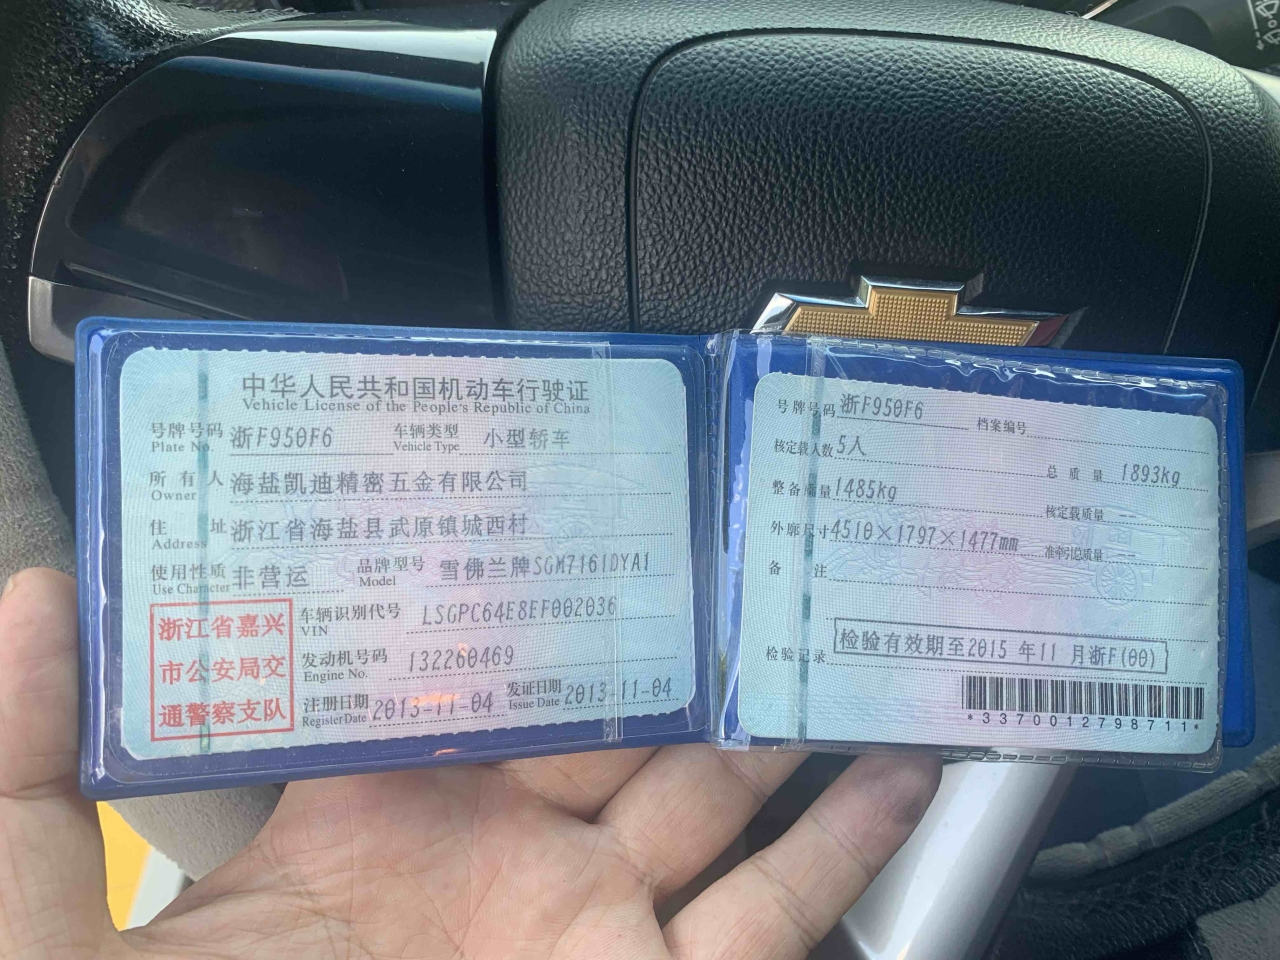 中华人民共和国机动车行驶证
Vehicle License of the People's Republic of China
号牌号码 浙F950F6 车辆类型 小型轿车
Plate No. Vehicle Type
所有人 海盐凯迪精密五金有限公司
Owner
住址 浙江省海盐县武原镇城西村
Address
使用性质 非营运 品牌型号 雪佛兰牌SGM7161DYA1
Use Character Model
浙江省嘉兴
市公安局交
通警察支队
车辆识别代号 LSGPC64E8EF002036
VIN
发动机号码 132260469
Engine No.
注册日期 2013-11-04 发证日期 2013-11-04
Register Date Issue Date
号牌号码 浙F950F6 档案编号
核定载人数 5人 总质量 1893kg
整备质量 1485kg 核定载质量 --
外廓尺寸 4510×1797×1477mm 准牵引总质量 --
备注
检验记录 检验有效期至2015年11月浙F(00)
*3370012798711*